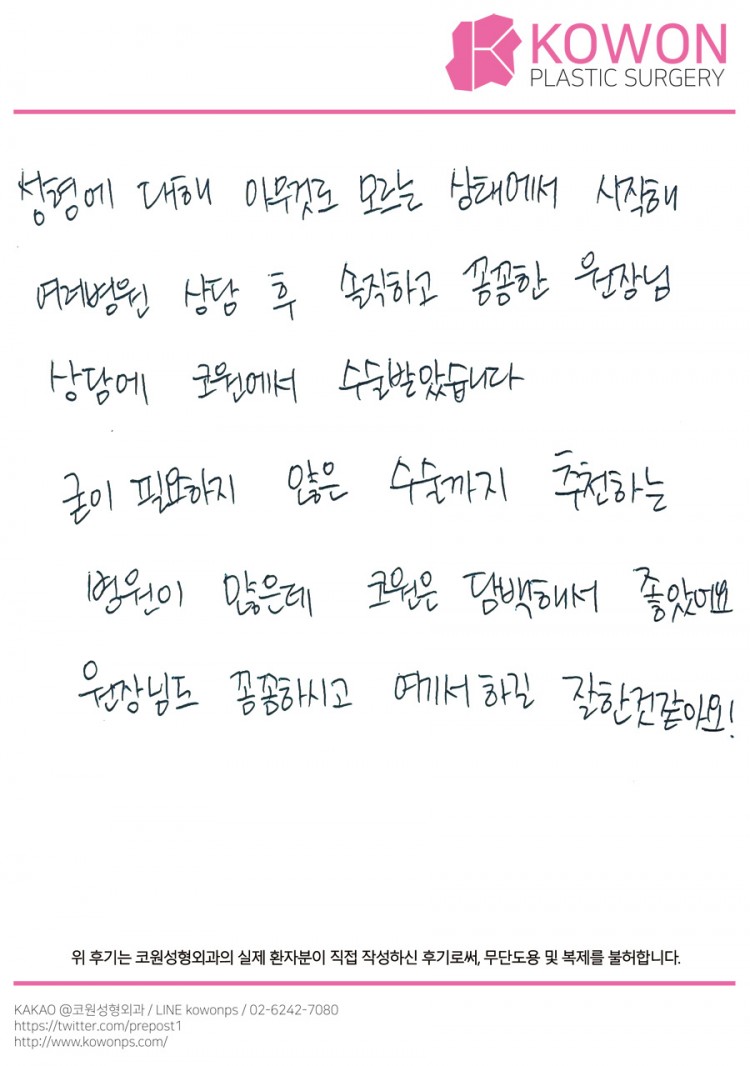 KOWON
PLASTIC SURGERY
성형에 대해 아무것도 모르는 상태에서 시작해
여러병원 상담 후 솔직하고 꼼꼼한 원장님
상담에 코원에서 수술받았습니다
굳이 필요하지 않은 수술까지 추천하는
병원이 많은데 코원은 담백해서 좋았어요
원장님도 꼼꼼하시고 여기서하길 잘한것같아요!
위 후기는 코원성형외과의 실제 환자분이 직접 작성하신 후기로써, 무단도용 및 복제를 불허합니다.
KAKAO @코원성형외과 / LINE kowonps / 02-6242-7080
https://twitter.com/prepost1
http://www.kowonps.com/